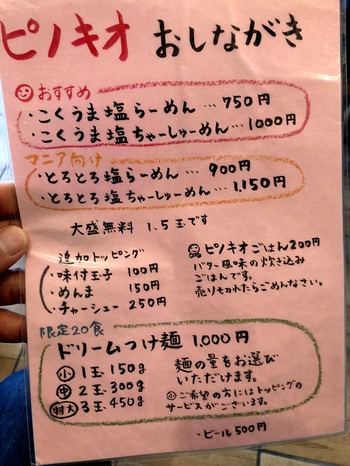 ピノキオ おしながき
おすすめ
・こくうま塩らーめん…750円
・こくうま塩ちゃーしゅーめん…1000円
マニア向け
・とろとろ塩らーめん…900円
・とろとろ塩ちゃーしゅーめん…1,150円
大盛無料 1.5玉です
追加トッピング
・味付玉子 100円
・めんま 150円
・チャーシュー 250円
ピノキオごはん200円
バター風味の炊き込み
ごはんです。
売り切れたらごめんなさい。
限定20食
ドリームつけ麺 1,000円
小 1玉 150g
中 2玉 300g
特大 3玉 450g
麺の量をお選び
いただけます。
小ご希望の方にはトッピングの
サービスがございます。
・ビール500円